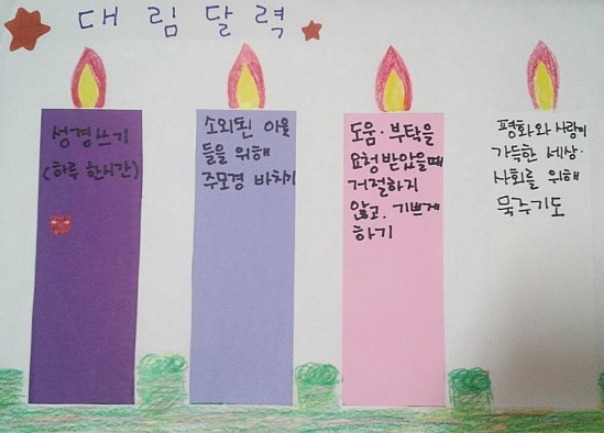 대림달력
성경쓰기
(하루 한시간)
소외된 이웃
들을 위해
주모경 바치기
도움·부탁을
요청받았을때
거절하지
않고, 기쁘게
하기
평화와 사랑이
가득한 세상·
사회를 위해
묵주기도